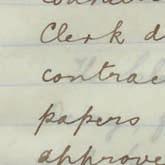 Clerk d
contrac
papers
approve